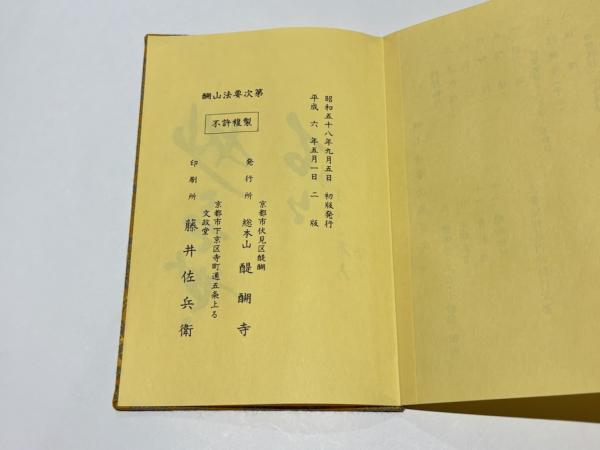 昭和五十八年九月五日 初版発行
平成 六 年五月一日 二 版
第次要法山醐
不許複製
発行所
京都市伏見区醍醐
総本山 醍醐寺
印刷所
京都市下京区寺町通五条上る
文政堂
藤井佐兵衛